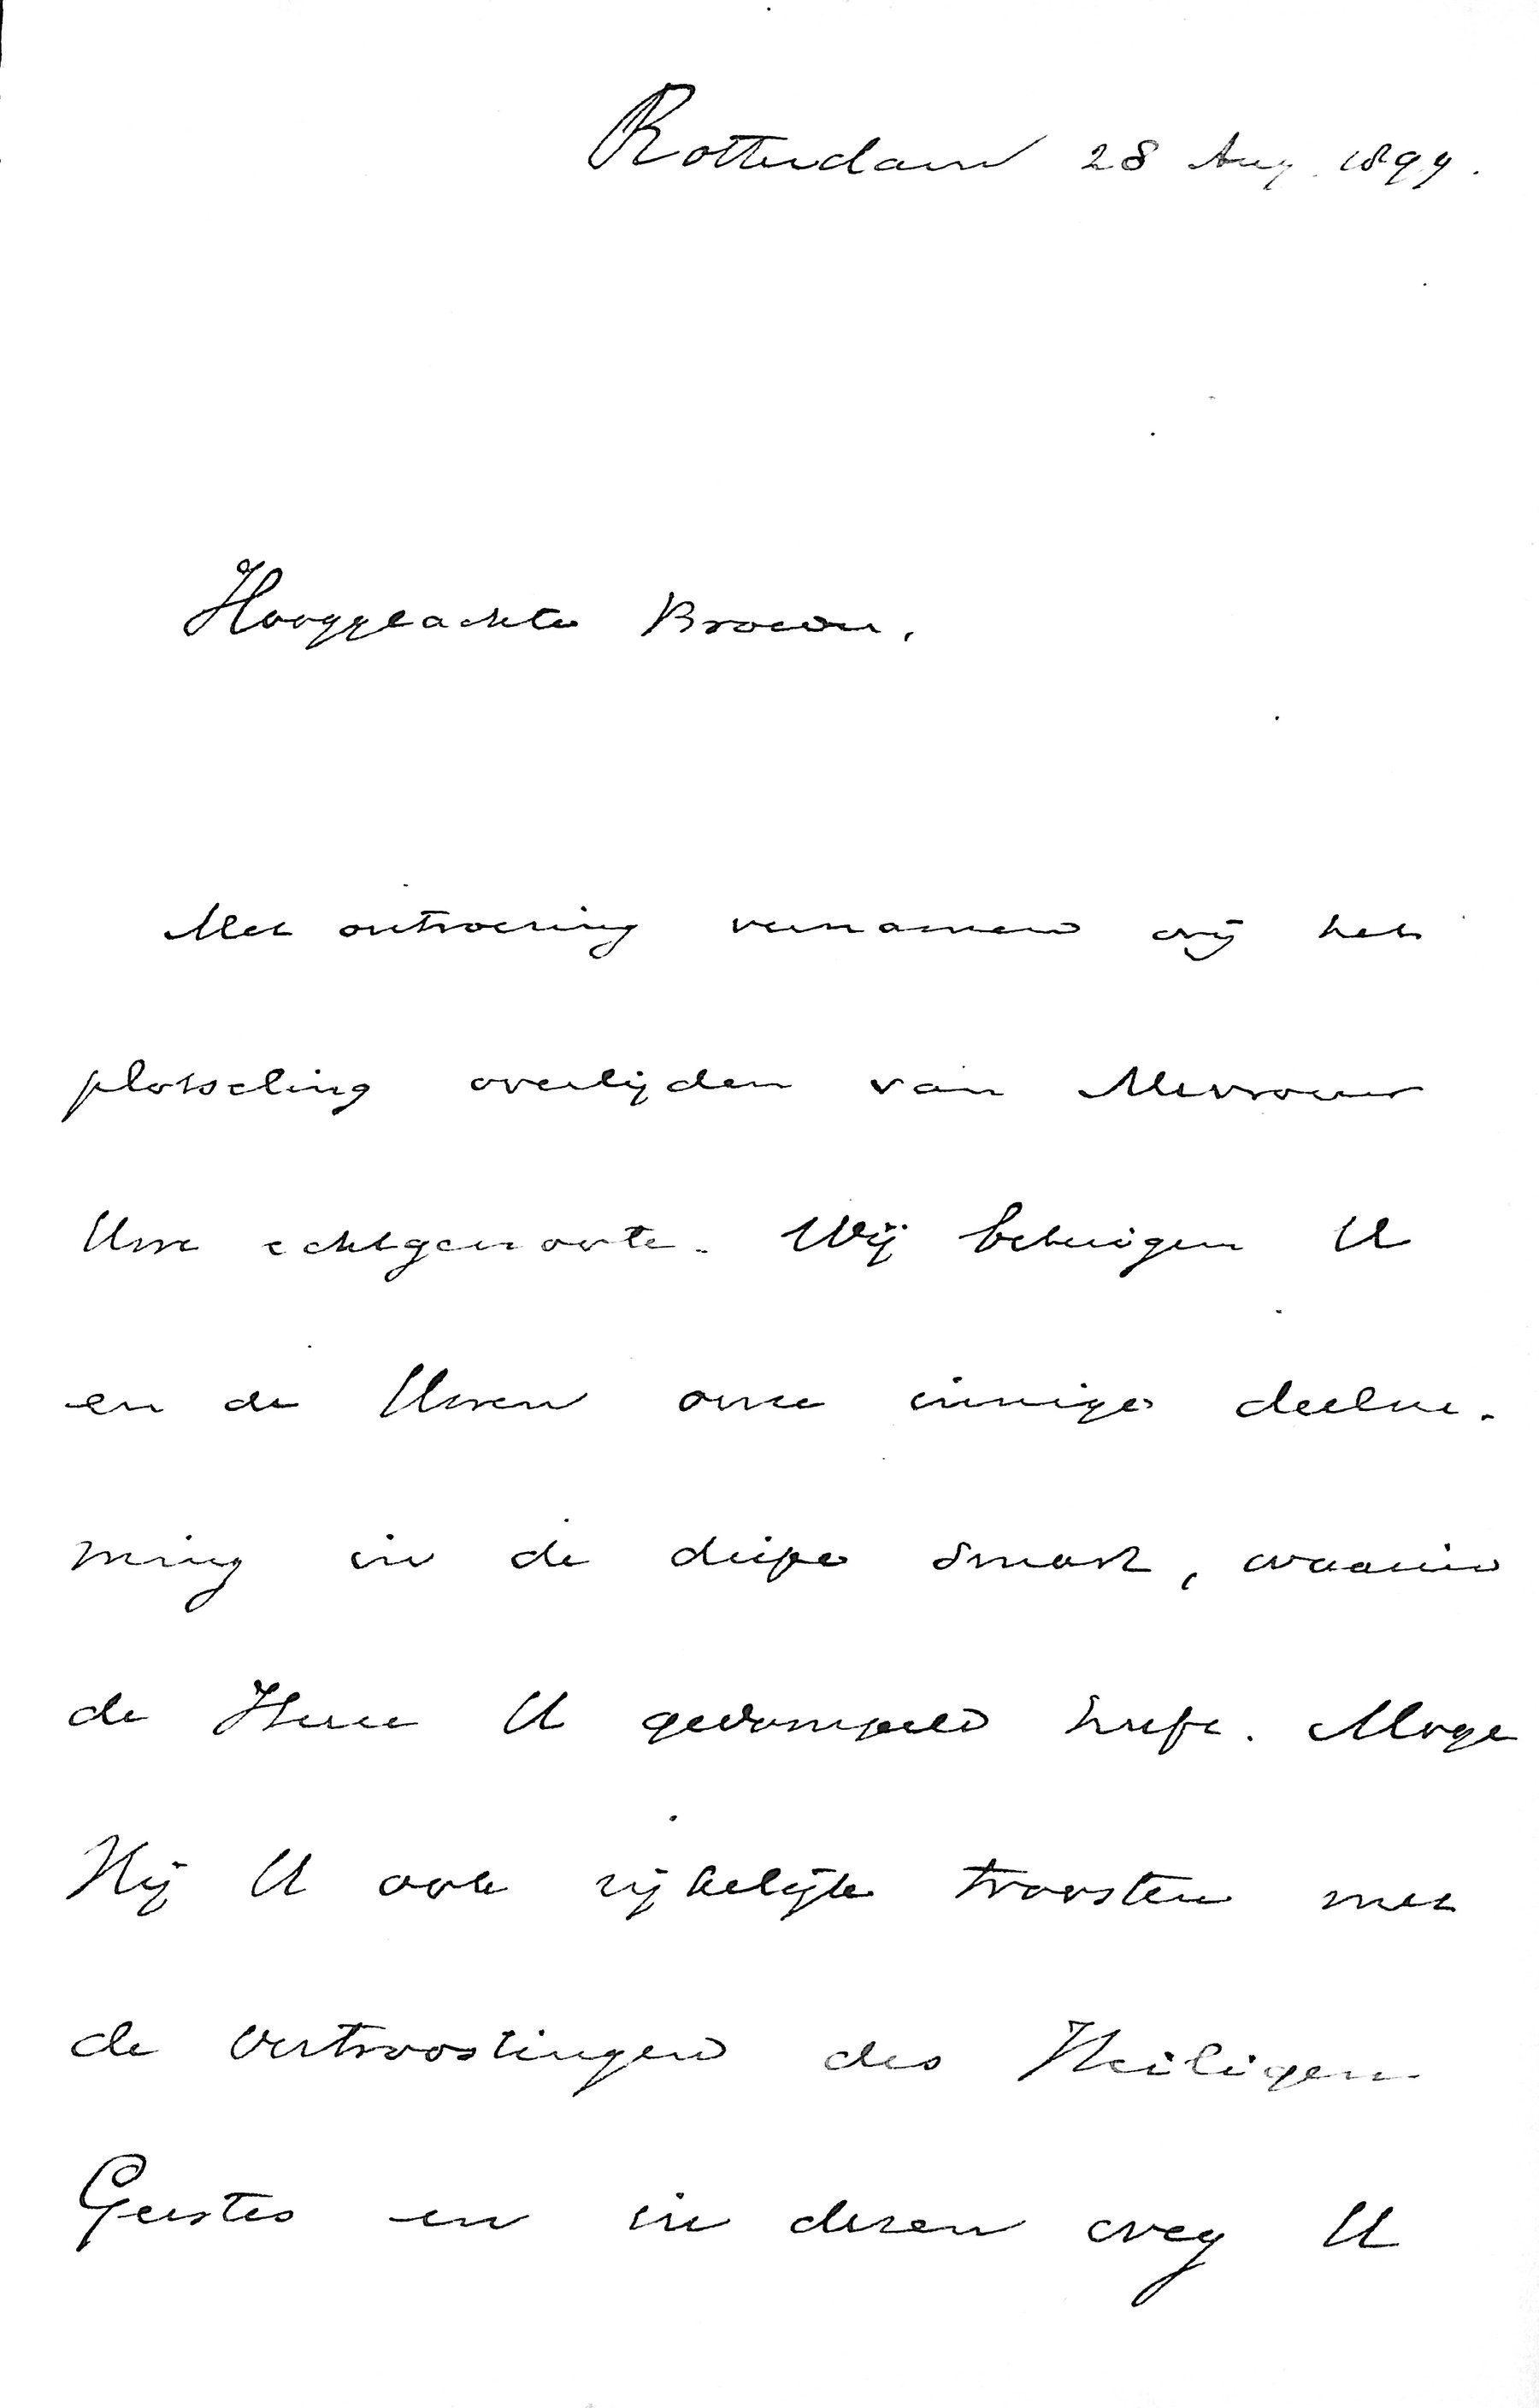 Rotterdam 28 Aug. 1899.
Hooggeachte Broeder,
Met ontroering vernamen wij het
plotseling overlijden van Mevrouw
Uwe echtgenoote. Wij betuigen U
en de Uwen onze innige deelne-
ming in de diepe smart, waarin
de Heere U gedompeld heeft. Moge
Hij U ook rijkelijk troosten met
de vertroostingen des Heiligen
Geestes en in dezen weg U